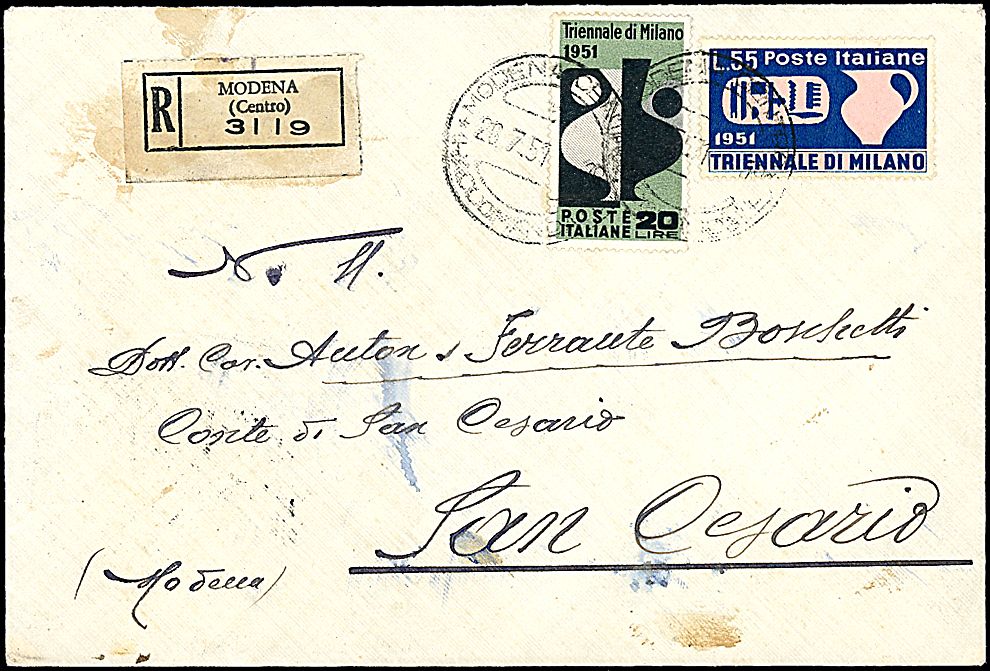 R
MODENA
(Centro)
3119
Triennale di Milano
1951
POSTE
ITALIANE 20
LIRE
L.55 Poste Italiane
1951
TRIENNALE DI MILANO
MODENA CENTRO
20.7.51
N. H.
Dott. Cav. Anton Ferrante Boschetti
Conte di San Cesario
San Cesario
(Modena)